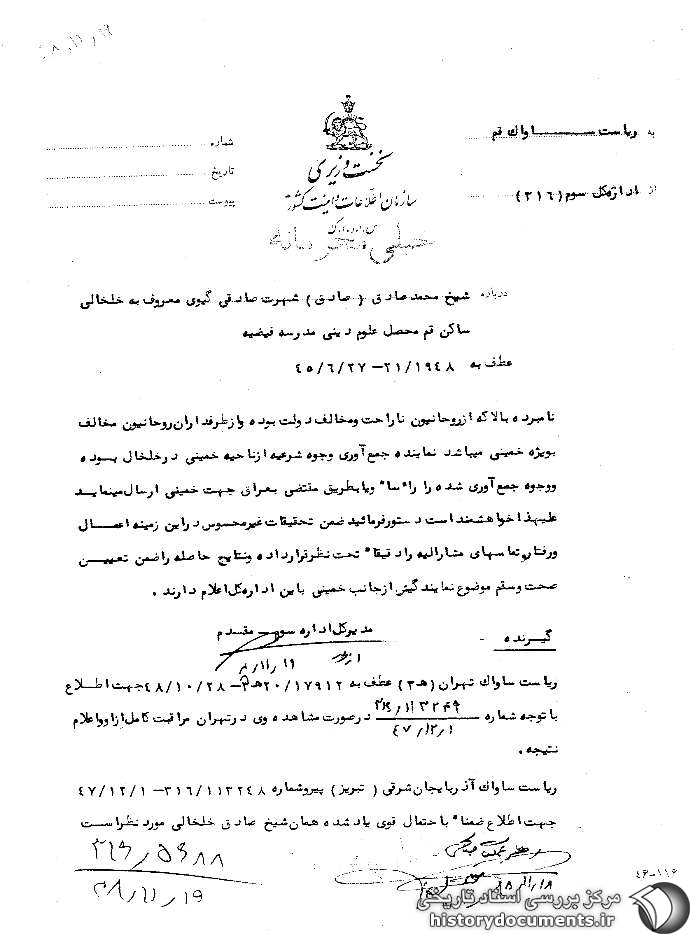 ۴۸/۱۱/۱۹
به ریاست ساواک قم
از اداره کل سوم (۳۱۶)
نخست وزیری
سازمان اطلاعات و امنیت کشور
س.ا.و.ا.ک
خیلی محرمانه
شماره
تاریخ
پیوست
درباره شیخ محمد صادق (صادق) شهرت صادقی گیوی معروف به خلخالی
ساکن قم محصل علوم دینی مدرسه فیضیه
عطف به ۲۱/۱۹۴۸ - ۴۵/۶/۲۷
نامبرده بالا که از روحانیون ناراحت ومخالف دولت بوده واز طرفداران روحانیون مخالف
بویژه خمینی میباشد نماینده جمع آوری وجوه شرعیه ازناحیه خمینی در خلخال بوده
ووجوه جمع آوری شده را راًسا ویابطریق مقتضی بعراق جهت خمینی ارسال مینماید
علیهذا خواهشمند است دستورفرمائید ضمن تحقیقات غیرمحسوس دراین زمینه اعمال
ورفتار وتماسهای مشارالیه رادقیقاً تحت نظرقرارداده ونتایج حاصله راضمن تعیین
صحت وسقم موضوع نمایندگیش ازجانب خمینی باین اداره کل اعلام دارند .
مدیرکل اداره سوم مقدم
گیرنده -
ریاست ساواک تهران (ه۳) عطف به ۲۰/۱۷۹۱۲ه۳ - ۴۸/۱۰/۲۸ جهت اطلاع
با توجه شماره ۳۱۶/۱۱۳۲۴۹ ۴۷/۱۲/۱ درصورت مشاهده وی درتهران مراقبت کامل ازاو واعلام
نتیجه .
ریاست ساواک آذربایجان شرقی (تبریز) پیروشماره ۳۱۶/۱۱۳۲۴۸ - ۴۷/۱۲/۱
جهت اطلاع ضمناً با احتمال قوی یاد شده همان شیخ صادق خلخالی مورد نظراست
۳۱۶/۵۶۸۸
۴۸/۱۱/۱۹
۴۸/۱۱/۱۸
۴۶-۱۱۶
مرکز بررسی اسناد تاریخی
historydocuments.ir